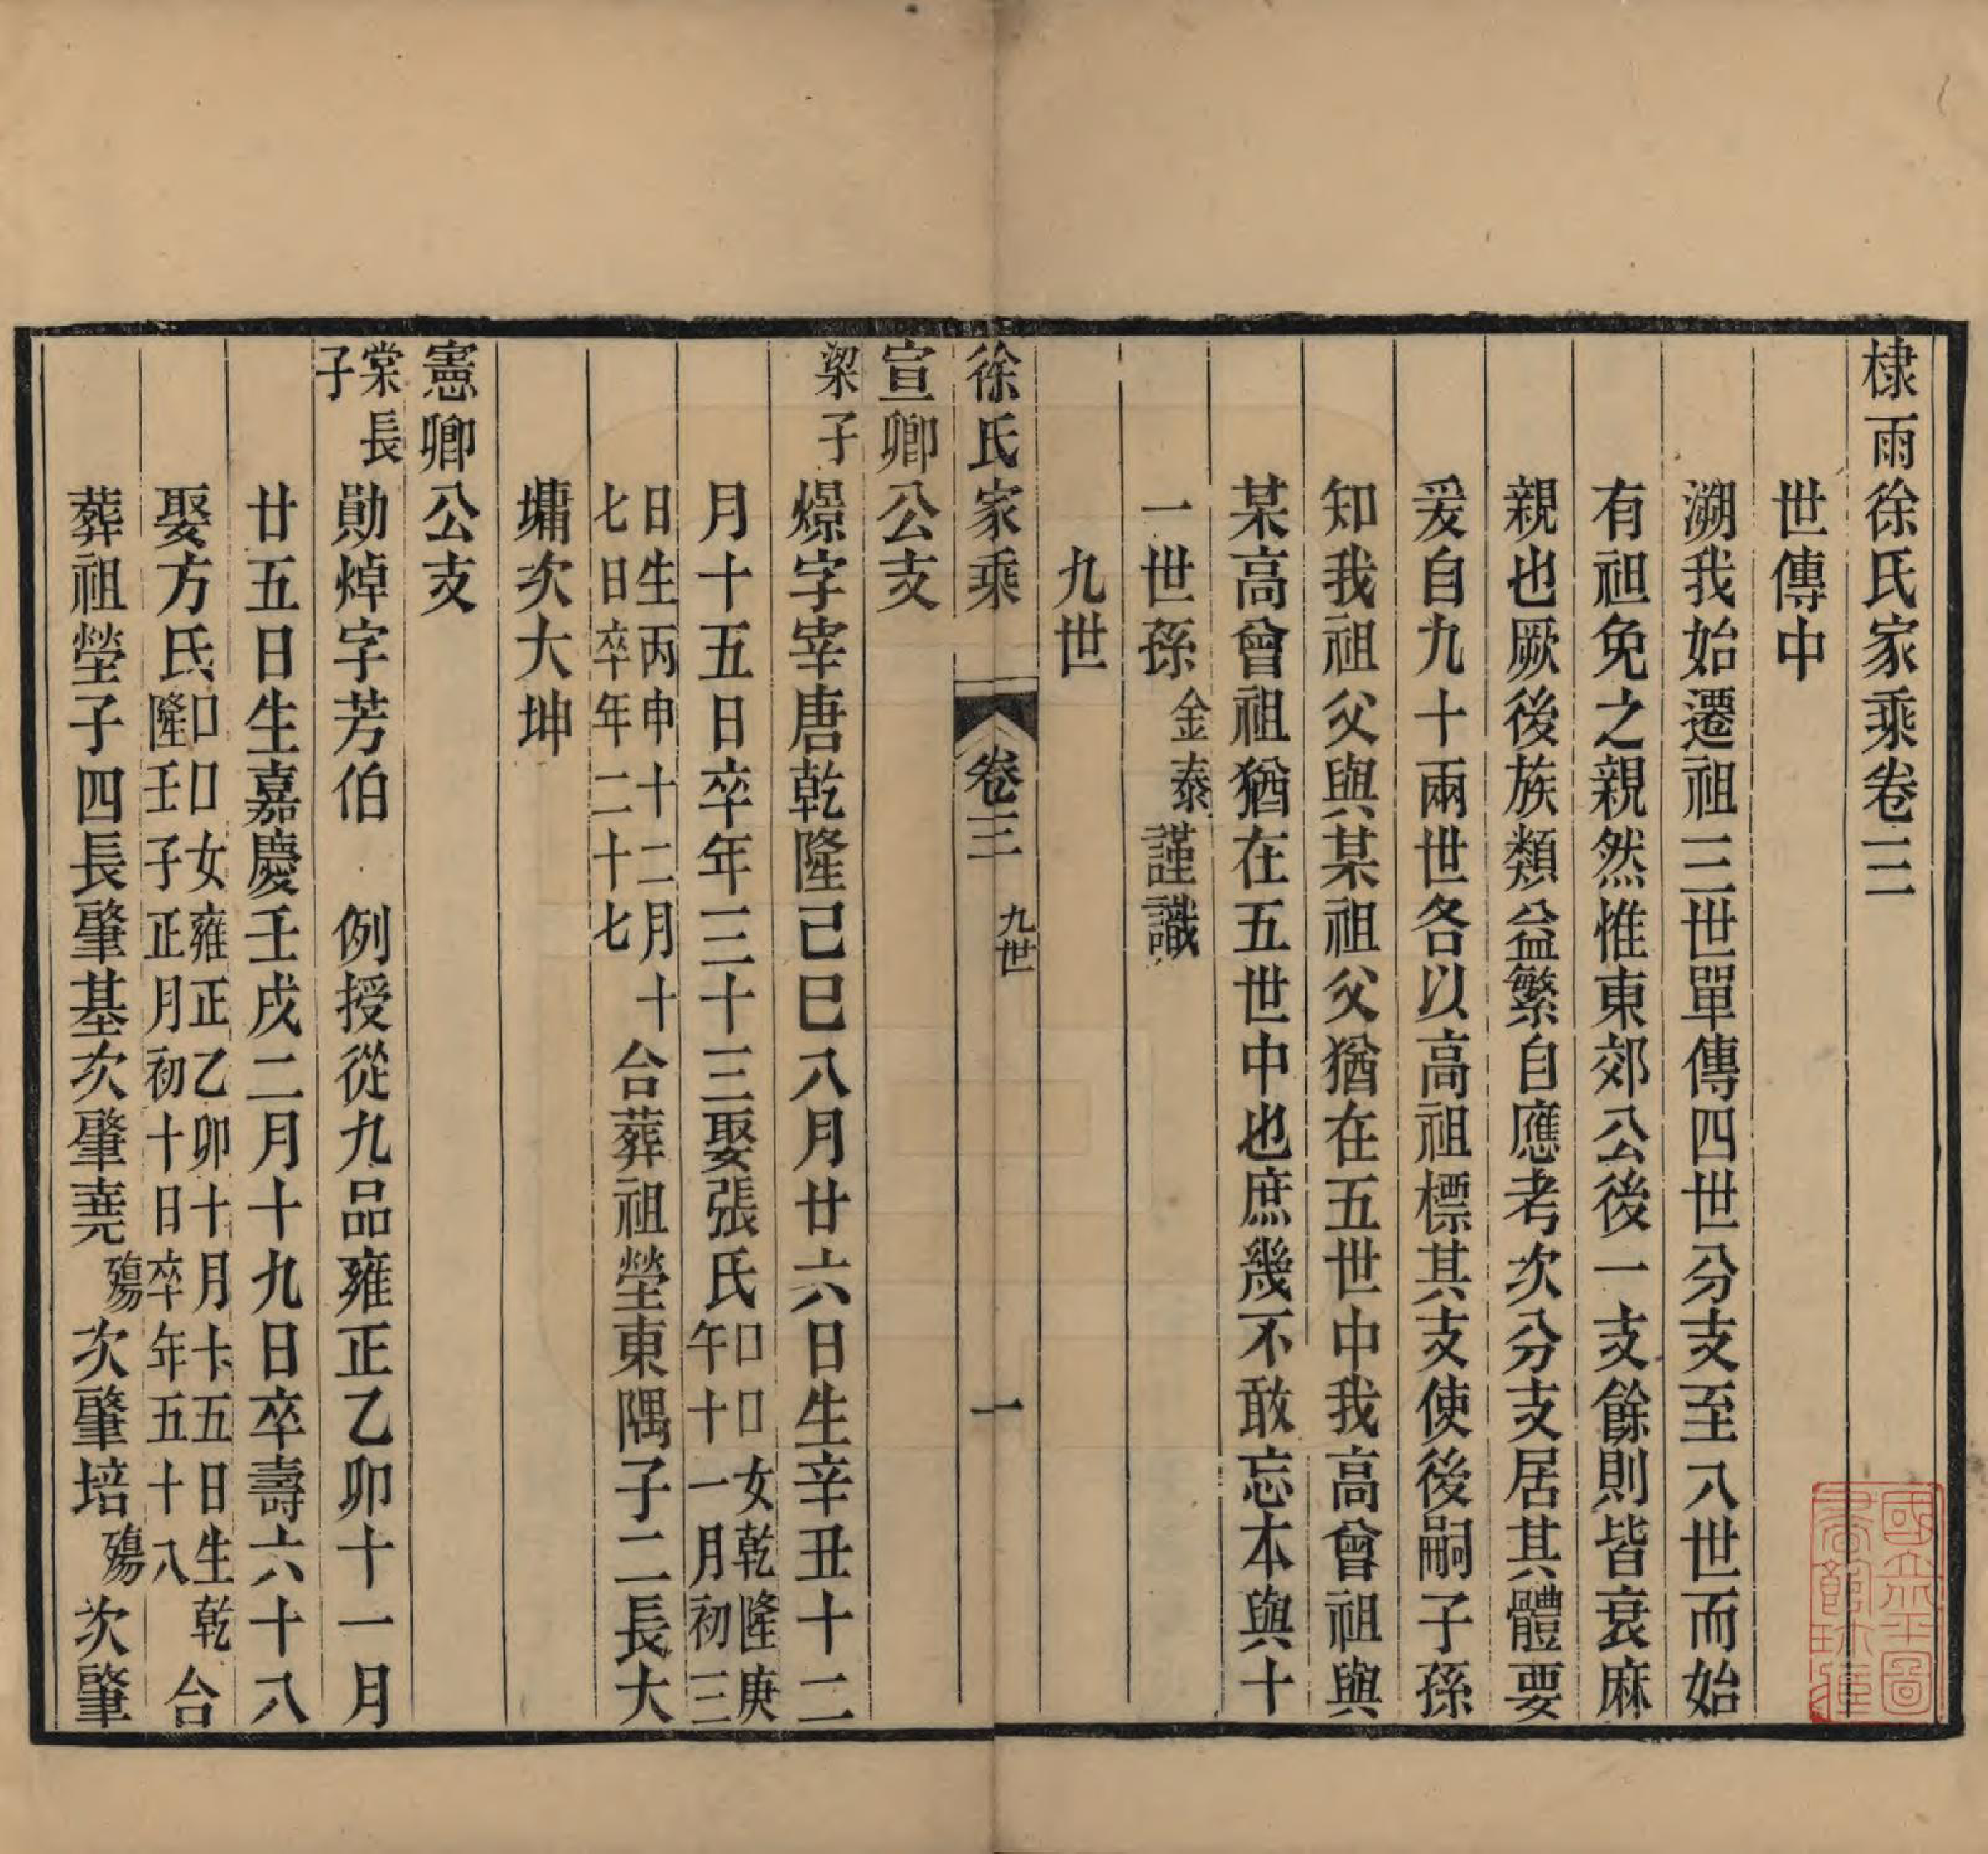 棣雨徐氏家乘卷三
世傳中
溯我始遷祖三世單傳四世分支至八世而始
有袒免之親然惟東郊公後一支餘則皆衰麻
親也厥後族類益繁自應考次分支居其體要
爰自九十兩世各以高祖標其支使後嗣子孫
知我祖父與某祖父猶在五世中我高曾祖與
某高曾祖猶在五世中也庶幾不敢忘本與十
一世孫金泰謹識
九世
徐氏家乘 卷三 九世 一
宣卿公支
梁子 燝字宰唐乾隆己巳八月廿六日生辛丑十二
月十五日卒年三十三娶張氏口口女乾隆庚午十一月初三
日生丙申十二月十七日卒年二十七合葬祖塋東隅子二長大
墉次大坤
憲卿公支
棠長子 勛焯字芳伯 例授從九品雍正乙卯十一月
廿五日生嘉慶壬戌二月十九日卒壽六十八
娶方氏口口女雍正乙卯十月十五日生乾隆壬子正月初十日卒年五十八合
葬祖塋子四長肇基次肇堯殤次肇培殤次肇
國立北平圖書館珍藏